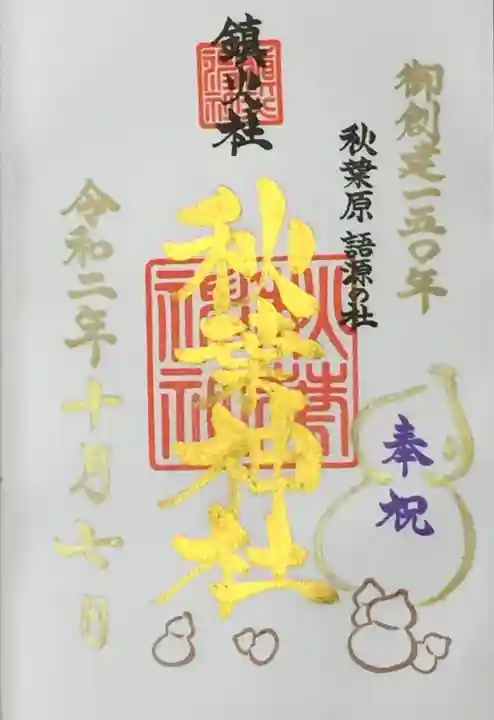 御創建一五〇年
奉祝
秋葉原語源の社
鎮火社
秋葉神社
令和二年十月七日